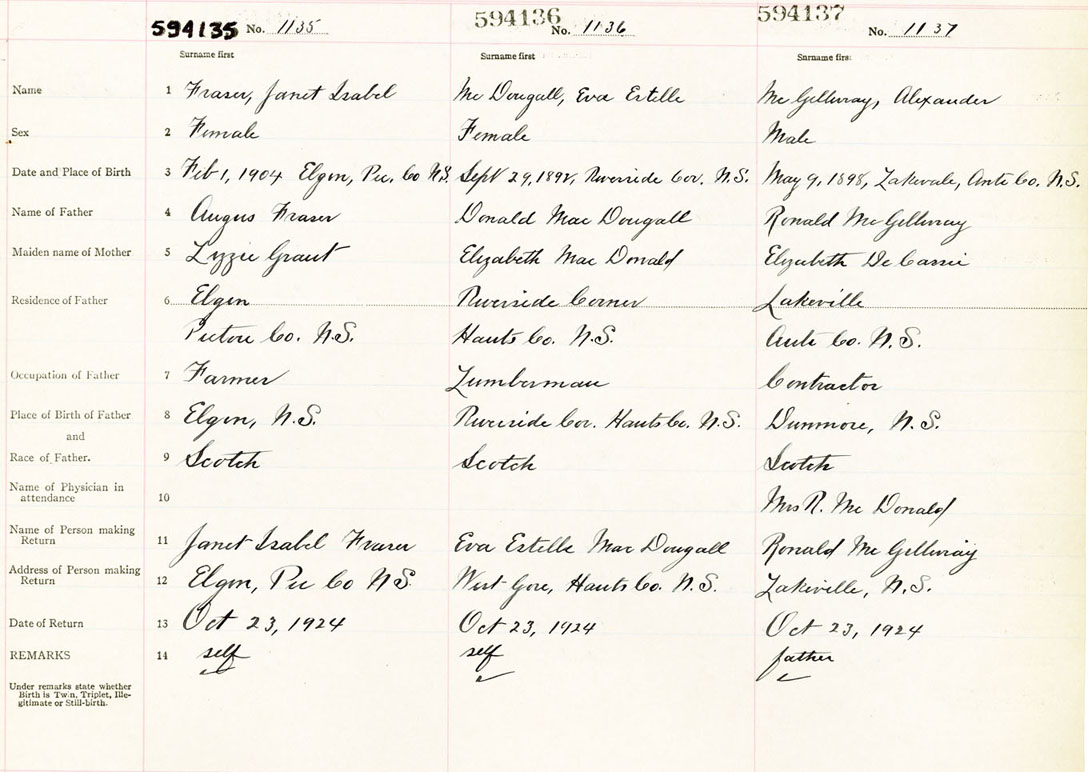 594135 No. 1135 594136 No. 1136 594137 No. 1137
Surname first Surname first Surname first
Name 1 Fraser, Janet Isabel Mc Dougall, Eva Estelle Mc Gillivray, Alexander
Sex 2 Female Female Male
Date and Place of Birth 3 Feb 1, 1904 Elgin, Pic. Co N.S. Sept 29, Riverside Cor. N.S. May 9, 1898, Lakevale, Anti Co. N.S.
Name of Father 4 Angus Fraser Donald Mac Dougall Ronald Mc Gillivray
Maiden name of Mother 5 Lizzie Grant Elizabeth Mac Donald Elizabeth De
Residence of Father 6 Elgin Riverside Corner Lakeville
Pictou Co. N.S. Hants Co. N.S. Anti Co. N.S.
Occupation of Father 7 Farmer Lumberman Contractor
Place of Birth of Father 8 Elgin, N.S. Riverside Cor. Hants Co. N.S. Dunmore, N.S.
and
Race of Father. 9 Scotch Scotch Scotch
Name of Physician in
attendance 10 Mrs R. Mc Donald
Name of Person making
Return 11 Janet Isabel Fraser Eva Estelle Mac Dougall Ronald Mc Gillivray
Address of Person making
Return 12 Elgin, Pic Co N.S. West Gore, Hants Co. N.S. Lakeville, N.S.
Date of Return 13 Oct 23, 1924 Oct 23, 1924 Oct 23, 1924
REMARKS 14 self self father
Under remarks state whether
Birth is Twin, Triplet, Ille-
gitimate or Still-birth.